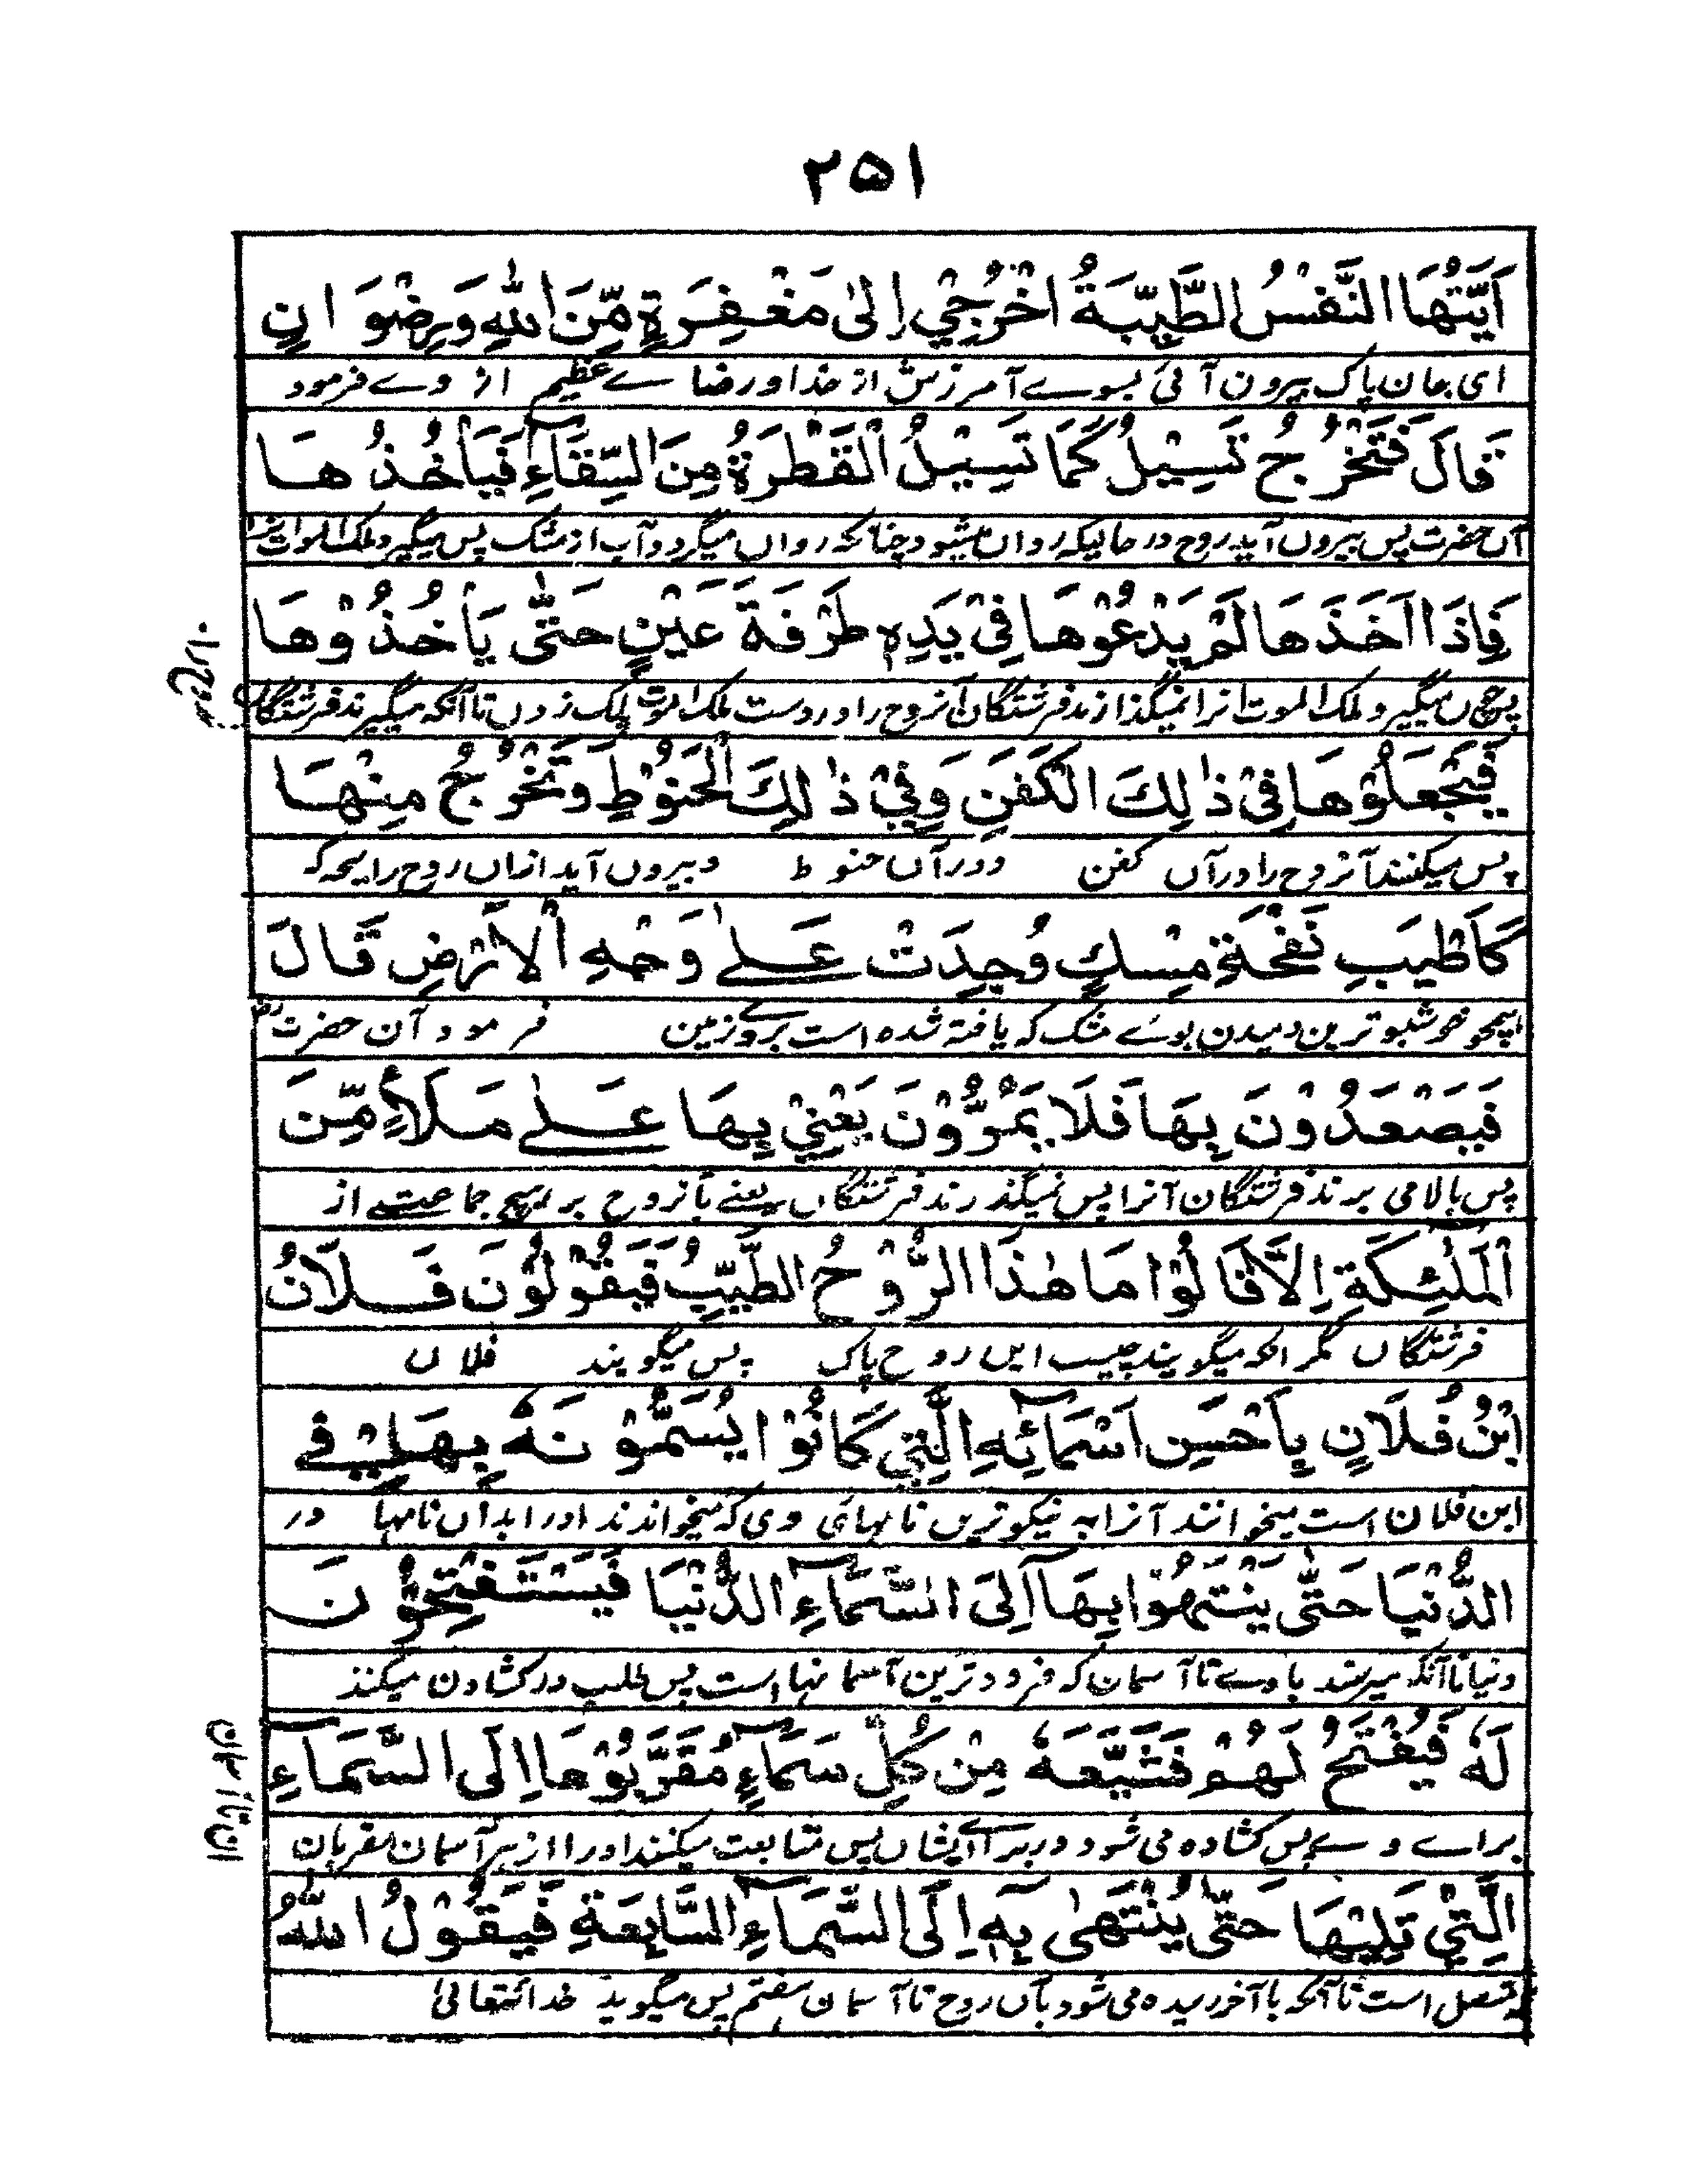 ٢٥١
اَيَّتُهَا النَّفْسُ الطَّيِّبَةُ اخْرُجِيْ اِلىٰ مَغْفِرَةٍ مِّنَ اللهِ وَرِضْوَانٍ
ای جان پاک بیرون آئی بسوے آمرزش از خدا و رضاے عظیم از وے فرمود
قَالَ فَتَخْرُجُ تَسِيْلُ كَمَا تَسِيْلُ الْقَطْرَةُ مِنَ السِّقَاءِ فَيَأْخُذُهَا
آن حضرت پس بیرون آید روح در حالیکه روان میشود چنانکه روان میگردد آب از مشک پس میگیرد ملک الموت آنرا
فَاِذَا اَخَذَهَا لَمْ يَدْعُوْهَا فِيْ يَدِهٖ طَرْفَةَ عَيْنٍ حَتّٰى يَأْخُذُوْهَا
پس چوں میگیرد ملک الموت آنرا نمیگذارند فرشتگان آنروح را در دست ملک الموت پلک زدن تا آنکه میگیرند فرشتگان
فَيَجْعَلُوْهَا فِيْ ذٰلِكَ الْكَفَنِ وَفِيْ ذٰلِكَ الْحَنُوْطِ وَتَخْرُجُ مِنْهَا
پس میکنند آنروح را در آں کفن و در آں حنوط و بیروں آید ازاں روح رایحه که
كَاَطْيَبِ نَفْحَةِ مِسْكٍ وُجِدَتْ عَلٰے وَجْهِ الْاَرْضِ قَالَ
همچو خوشبو ترین دمیدن بوئے مشک که یافته شده است بر روے زمین فرمود آن حضرت
فَيَصْعَدُوْنَ بِهَا فَلَا يَمُرُّوْنَ يَعْنِيْ بِهَا عَلٰے مَلَاءٍ مِّنَ
پس بالا می برند فرشتگان آنرا پس نمیگذرند فرشتگاں یعنے بآنروح بر هیچ جماعتے از
الْمَلٰئِكَةِ اِلَّا قَالُوْا مَا هٰذَا الرُّوْحُ الطَّيِّبُ فَيَقُوْلُوْنَ فُلَانُ
فرشتگاں مگر آنکه میگویند چیست ایں روح پاک پس میگویند فلاں
ابْنُ فُلَانٍ بِاَحْسَنِ اَسْمَائِهِ الَّتِيْ كَانُوْا يُسَمُّوْنَهٗ بِهَا فِے
ابن فلان است میخوانند آنرا به نیکو ترین نامهائی وی که میخواندند او را بداں نامها در
الدُّنْيَا حَتّٰى يَنْتَهُوْا بِهَا اِلَى السَّمَاءِ الدُّنْيَا فَيَسْتَفْتِحُوْنَ
دنیا تا آنکه میرسند با وے تا آسمان که فرود ترین آسمانها است پس طلب در کشادن میکنند
لَهٗ فَيُفْتَحُ لَهُمْ فَشَيَّعَهٗ مِنْ كُلِّ سَمَاءٍ مُقَرَّبُوْهَا اِلَى السَّمَاءِ
براے وے پس کشاده می شود در برائے ایشاں پس مشایعت میکنند او را از هر آسمان مقربان
الَّتِيْ تَلِيْهَا حَتّٰى يُنْتَهٰى بِهٖ اِلَى السَّمَاءِ السَّابِعَةِ فَيَقُوْلُ اللهُ
متصل است تا آنکه بآخر رسیده می شود بآں روح تا آسمان هفتم پس میگوید خدائتعالیٰ